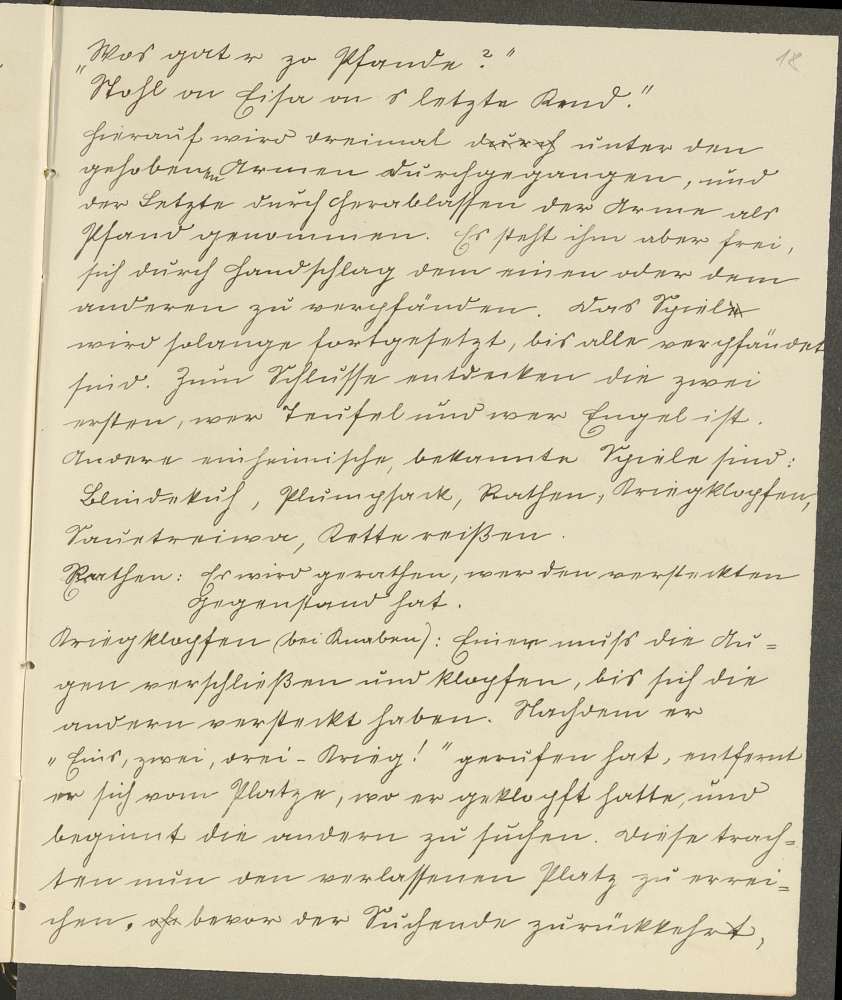 18
„Was gat r zo Pfande?"
„Stohl on Eisa on s letzte Kend."
Hierauf wird dreimal durch unter den
gehobenen Armen durchgegangen, und
der Letzte durch Herablassen der Arme als
Pfand genommen. Es steht ihm aber frei,
sich durch Handschlag dem einen oder dem
anderen zu verpfänden. Das Spiel
wird solange fortgesetzt, bis alle verpfändet
sind. Zum Schlusse entdecken die zwei
ersten, wer Teufel und wer Engel ist.
Andere einheimische, bekannte Spiele sind:
Blindekuh, Plumpsack, Rathen, Kriegklopfen,
Sautreiwa, Kette reißen.
Rathen: Es wird gerathen, wer den versteckten
Gegenstand hat.
Kriegklopfen (bei Knaben): Einer muß die Au=
gen verschließen und klopfen, bis sich die
andern versteckt haben. Nachdem er
„Eins, zwei, drei - Krieg!" gerufen hat, entfernt
er sich vom Platze, wo er geklopft hatte, und
beginnt die andern zu suchen. Diese trach=
ten nun den verlassenen Platz zu errei=
chen, bevor der Suchende zurückkehrt,